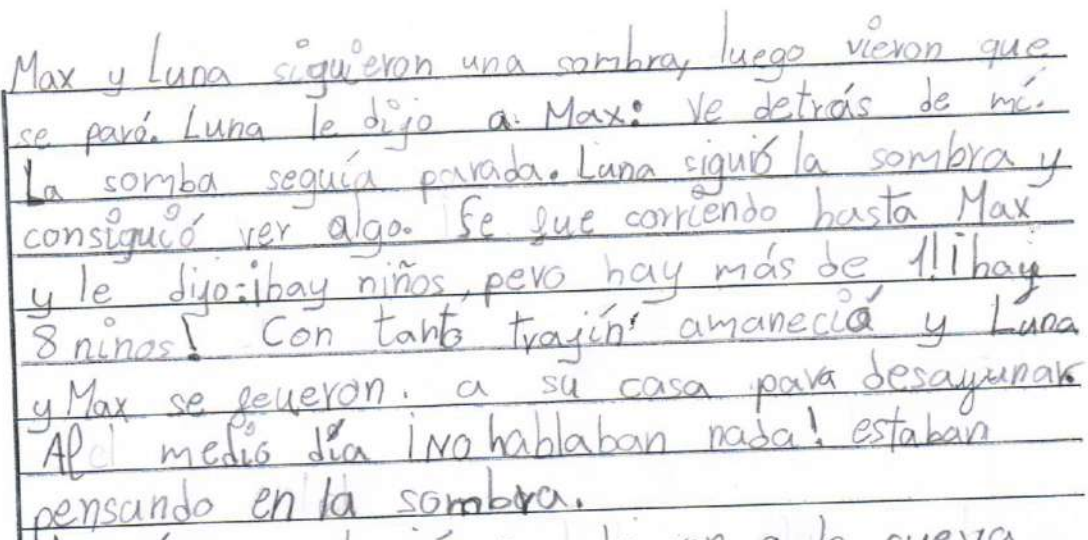 Max y Luna siguieron una sombra, luego vieron que
se paró. Luna le dijo a Max: Ve detrás de mí.
La somba seguía parada. Luna siguió la sombra y
consiguió ver algo. Se fue corriendo hasta Max
y le dijo: ¡hay niños, pero hay más de 1! ¡hay
8 ninos! Con tanto trajín amaneció y Luna
y Max se feueron. a su casa para desayunar.
Al medio día ¡No hablaban nada! estaban
pensando en la sombra.
a la cueva